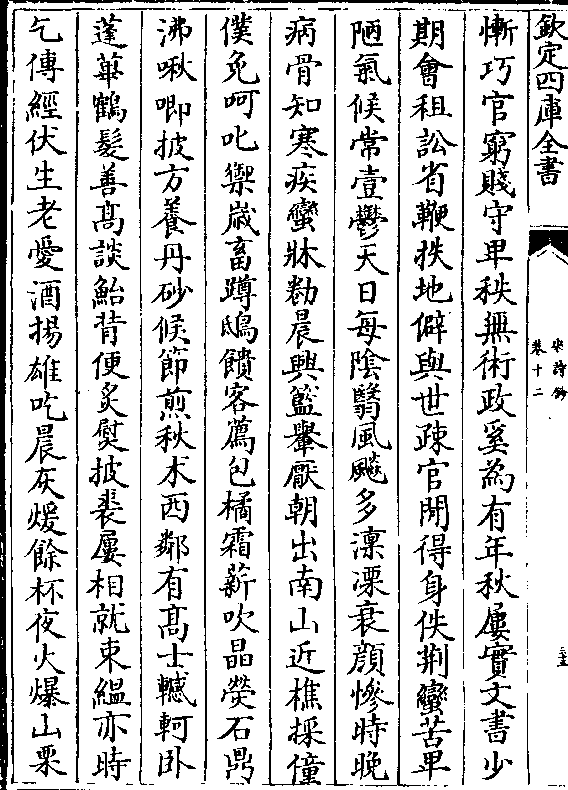 欽定四庫全書
宋詩鈔
卷十二
三五
慚巧官窮賤守卑秩無術政奚為有年秋屢實文書少
期會租訟省鞭抶地僻與世疎官閒得身佚荆蠻苦卑
陋氣候常壹鬱天日每隂翳風飈多凛溧衰顔慘時晚
病骨知寒疾蠻牀勌晨興籃轝厭朝出南山近樵採僮
僕免呵叱禦嵗畜蹲鴟饋客薦包橘霜薪吹晶熒石鼎
沸啾唧披方養丹砂候節煎秋术西鄰有髙士轗軻卧
蓬蓽鶴髪善髙談鮐背便炙熨披裘屢相就束緼亦時
乞傳經伏生老愛酒揚雄吃晨灰煖餘杯夜火爆山栗